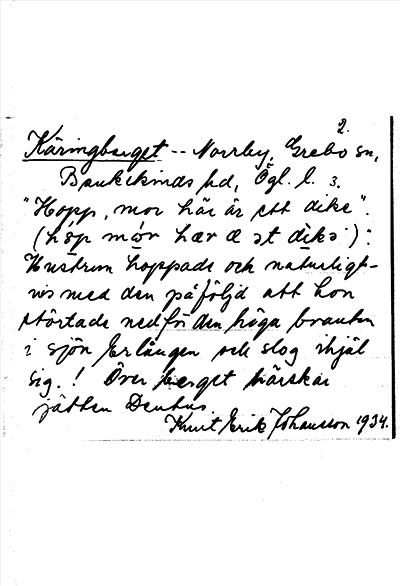 2.
Käringberget -- Norrby, Grebo sn,
Bankekinds hd, Ögl. l. 3.
"Hopp, mor här är ett dike".
(høp mør hær æ ət dikə):
Hustrun hoppade och naturligt-
vis med den påföljd att hon
störtade nedför den höga branten
i sjön Erlången och slog ihjäl
sig.! Över berget härskar
jätten Dentus.
Knut Erik Johansson 1934.